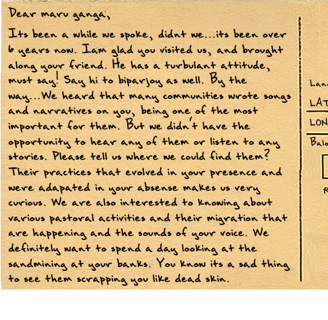 Dear maru ganga,
Its been a while we spoke, didnt we...its been over
6 years now. Iam glad you visited us, and brought
along your friend. He has a turbulant attitude,
must say! Say hi to biparjoy as well. By the
way...We heard that many communities wrote songs
and narratives on you, being one of the most
important for them. But we didn't have the
opportunity to hear any of them or listen to any
stories. Please tell us where we could find them?
Their practices that evolved in your presence and
were adapated in your absense makes us very
curious. We are also interested to knowing about
various pastoral activities and their migration that
are happening and the sounds of your voice. We
definitely want to spend a day looking at the
sandmining at your banks. You know its a sad thing
to see them scrapping you like dead skin.
Lan
LAT
LON
Balo